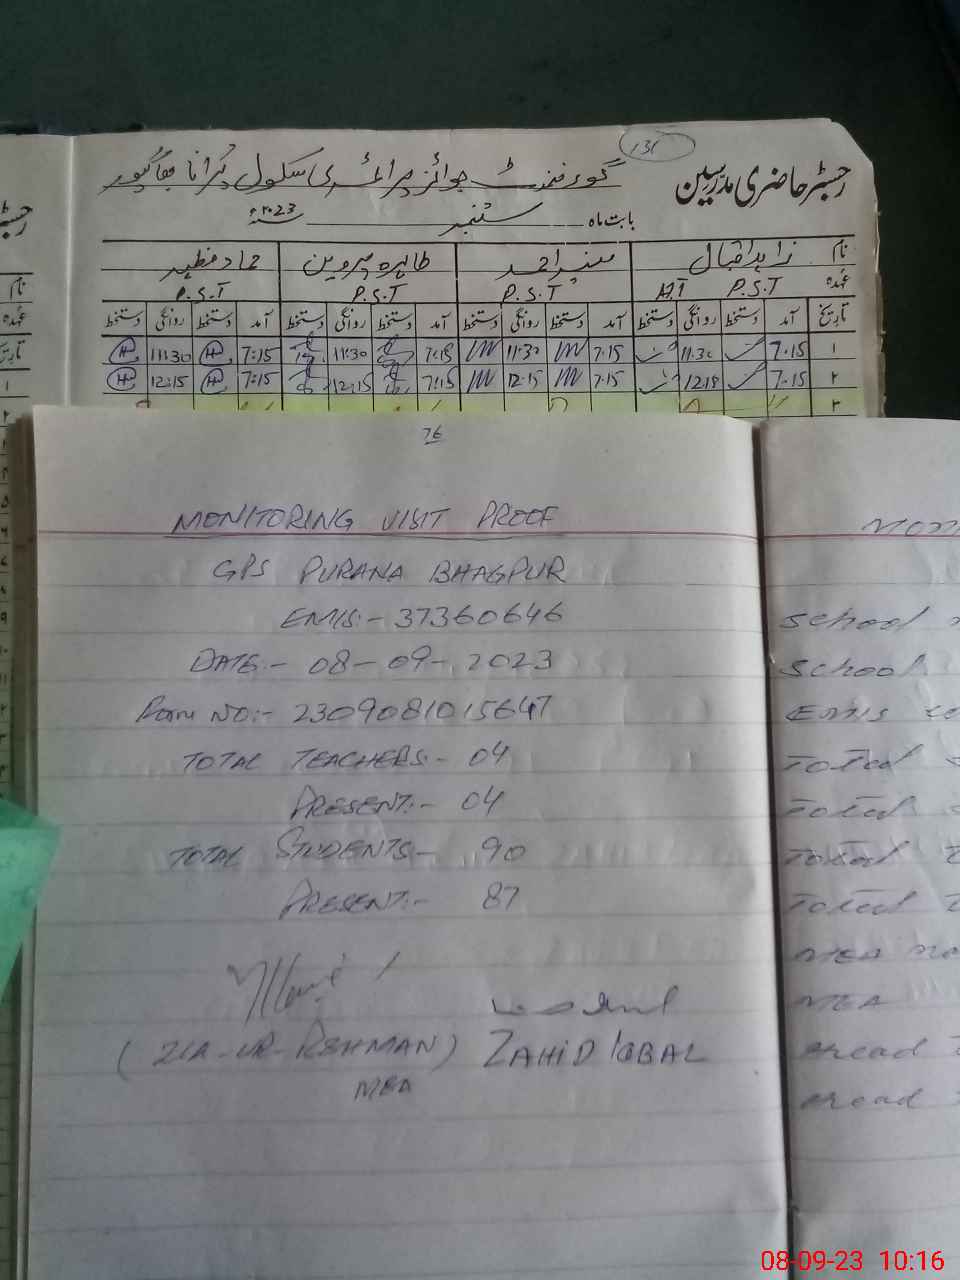 131
رجسٹر حاضری مدرسین گورنمنٹ بوائز پرائمری سکول پُرانا بھاگپور
بابت ماہ ستمبر ۲۰23ء
نام زاہد اقبال احمد طاہرہ پروین حماد مظہر
عہدہ P.S.T P.S.T P.S.T P.S.T
تاریخ آمد دستخط روانگی دستخط آمد دستخط روانگی دستخط آمد دستخط روانگی دستخط آمد دستخط روانگی دستخط
۱ 7.15 11.30 7.15 11.30 7:15 11:30 7:15 11:30
۲ 7.15 12.15 7.15 12.15 7:15 12:15 7:15 12:15
76
MONITORING VISIT PROOF
GPS PURANA BHAGPUR
EMIS:- 37360646
DATE:- 08-09-2023
FORM NO:- 2309081015647
TOTAL TEACHERS:- 04
PRESENT:- 04
TOTAL STUDENTS:- 90
PRESENT:- 87
(ZIA-UR-REHMAN) ZAHID IQBAL
MEA
school
school
EMIS
Total
Total
Total
Total
MEA
MEA
08-09-23 10:16